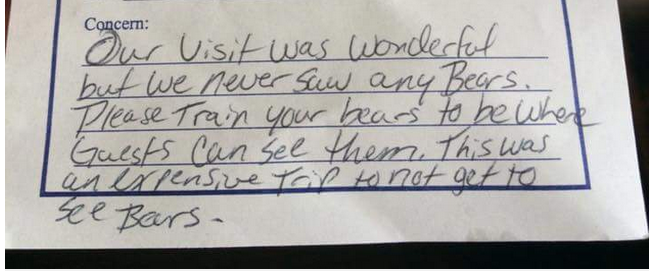 Concern:
Our Visit was Wonderful
but we never Saw any Bears.
Please Train your bears to be where
Guests Can see them. This was
an expensive Trip to not get to
See Bears.